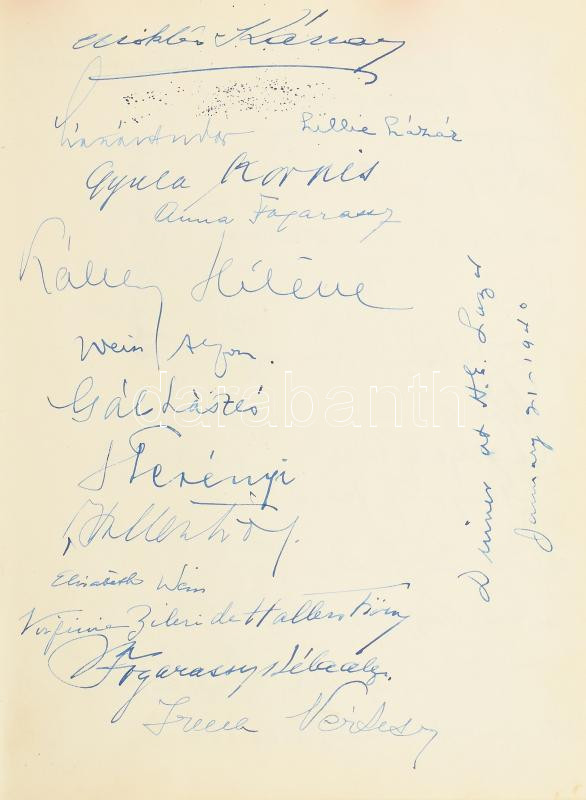 Miklós Kállay
Lázár Andor
Lillie Lázár
Gyula Kornis
Anna Fogarassy
Kállay Hélène
Wein
Gál László
Terényi
Elisabeth Wein
Virginie Zileri de Hallerstörny
Fogarassy Béla
Irena Vértessy
Dinner at H.E. Lazar
January 21-1940
darabanth